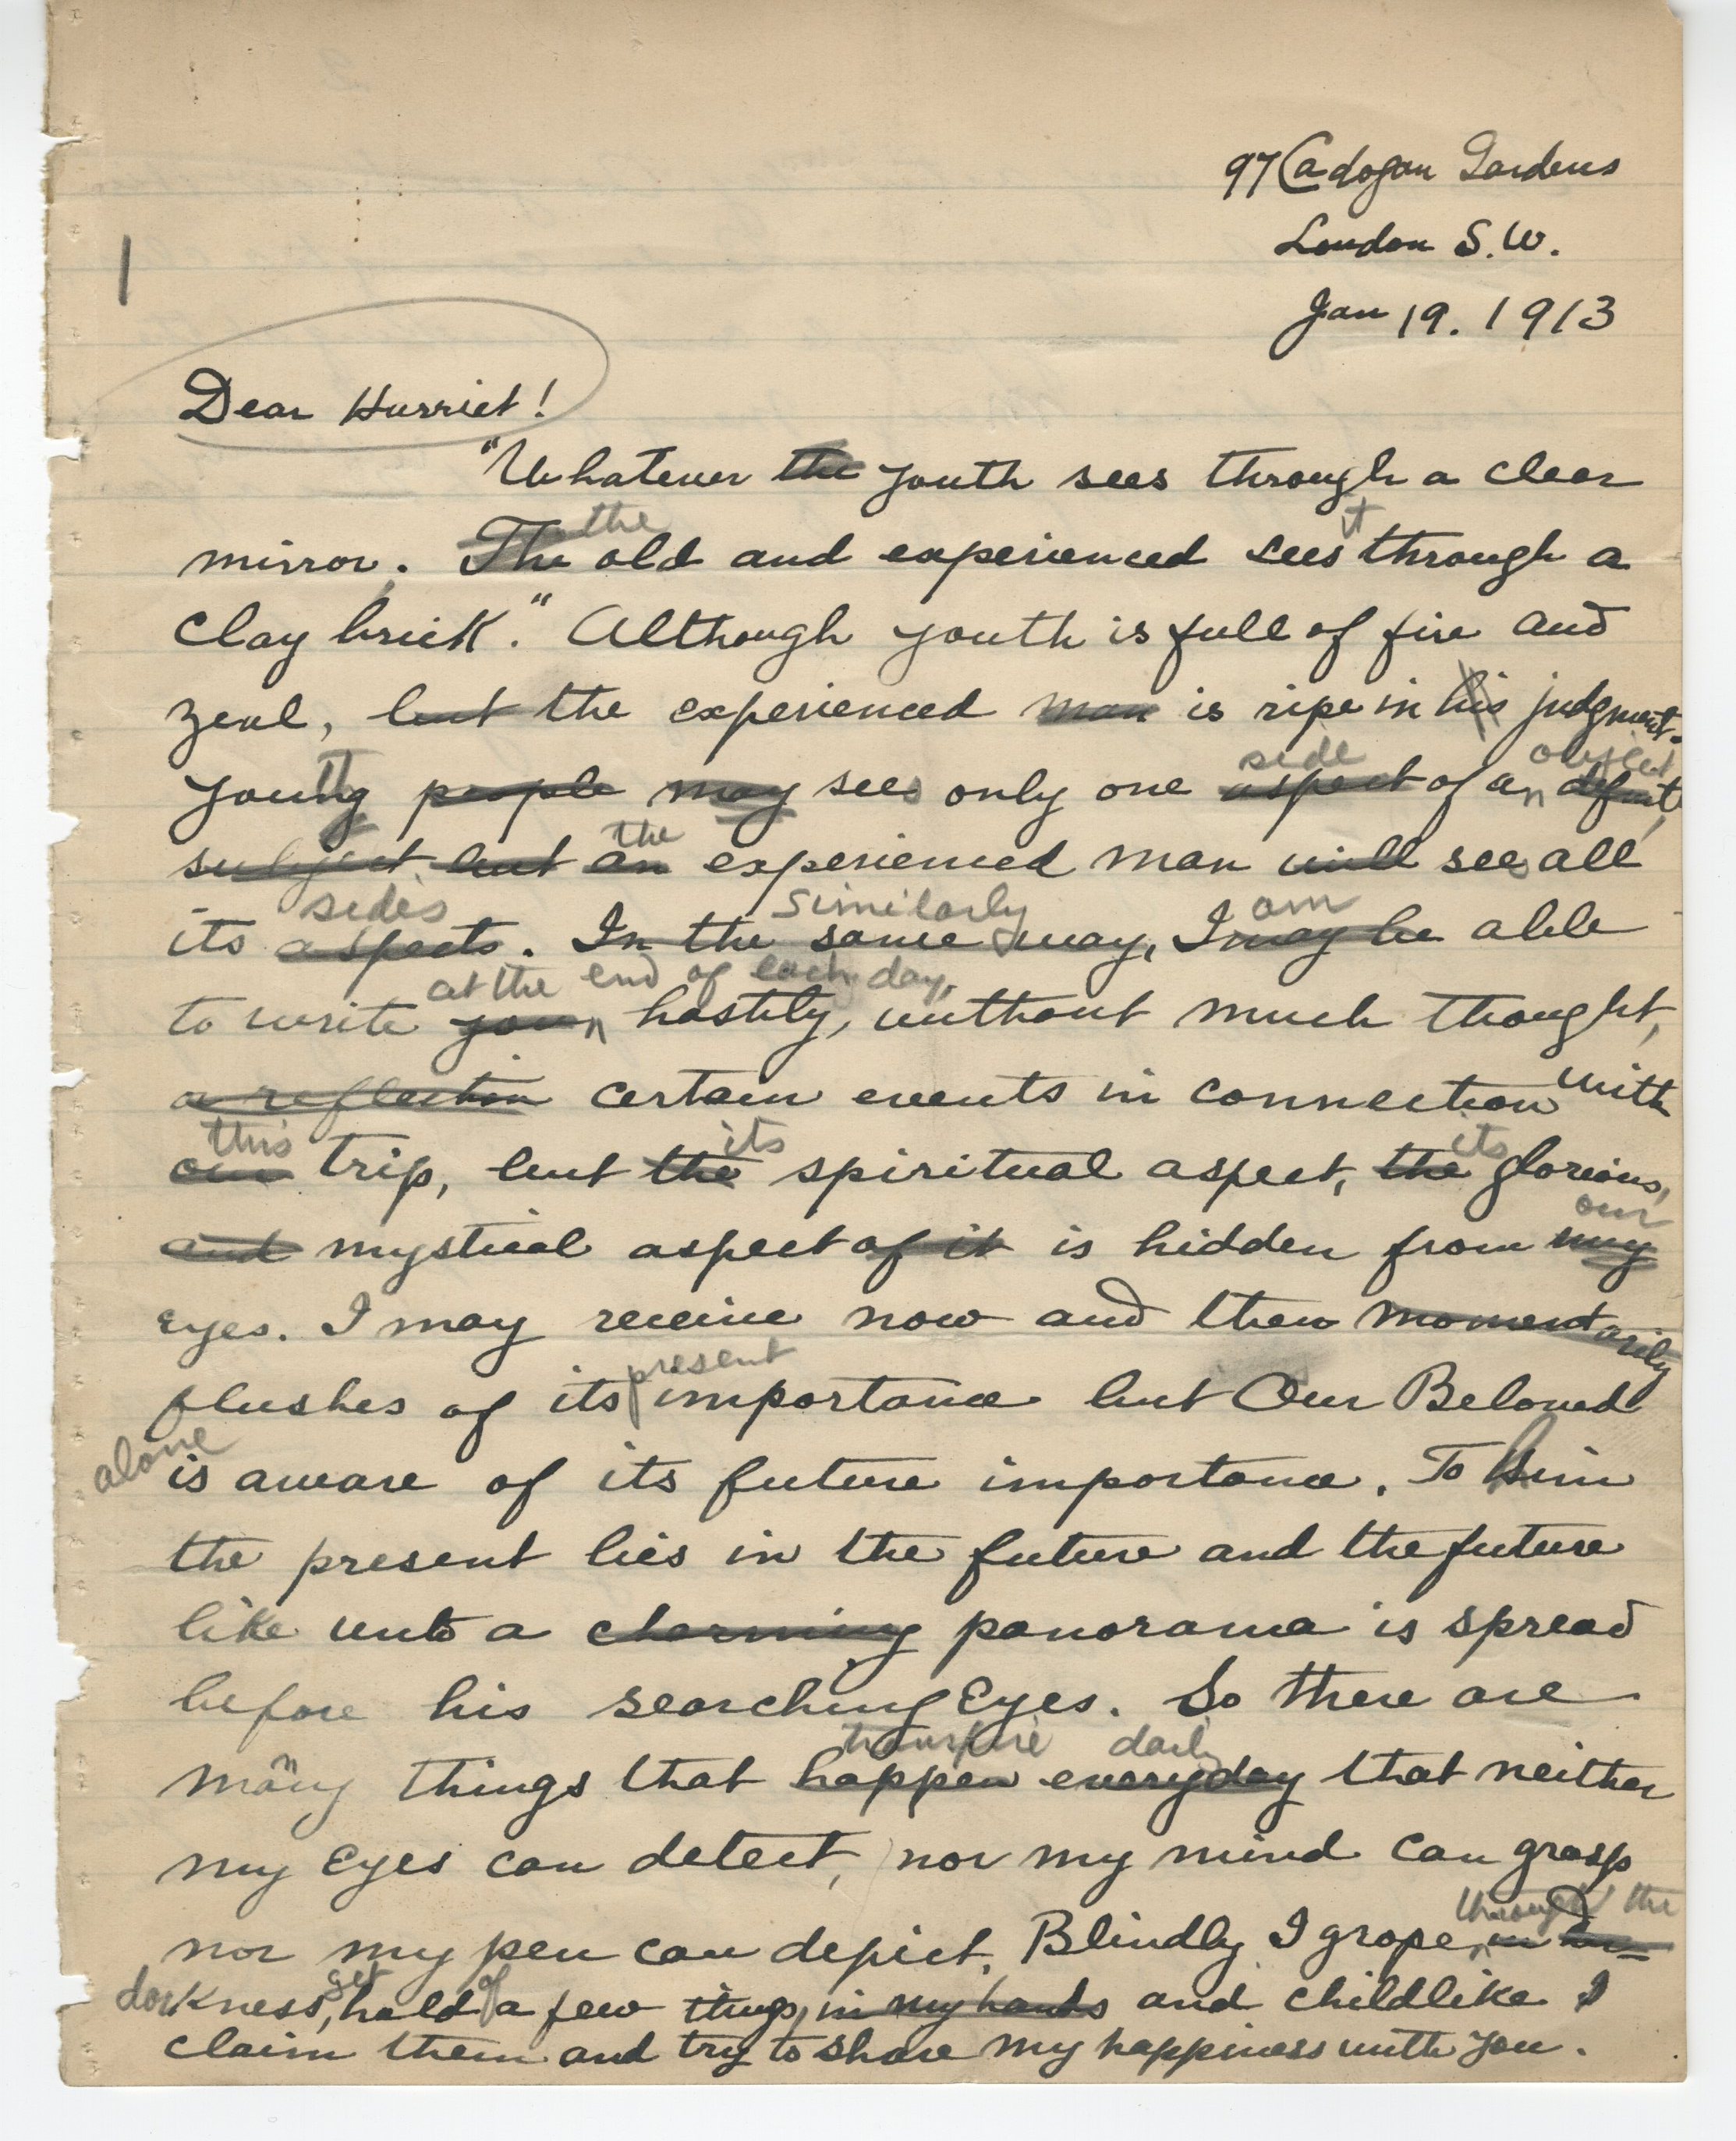 97 Cadogan Gardens
London S.W.
Jan 19. 1913
1
Dear Harriet!
"Whatever the youth sees through a clear
the it
mirror. The old and experienced sees through a
clay brick." Although youth is full of fire and
zeal, but the experienced man is ripe in his judgment.
th side object
Young people may sees only one aspect of an
the
subject but an experienced man will sees all
sides similarly am
its aspects. In the same way, I may be able
at the end of each day,
to write you hastily, without much thought,
or reflection certain events in connection with
this its its
our trip, but the spiritual aspect, the glorious,
our
and mystical aspect of it is hidden from my
eyes. I may receive now and then momentarily
present
flushes of its importance but Our Beloved
alone
is aware of its future importance. To Him
the present lies in the future and the future
like unto a charming panorama is spread
before his searching Eyes. So there are
transpire daily
many things that happen everyday that neither
my Eyes can detect, nor my mind can grasp
through the
nor my pen can depict. Blindly I grope in
get of
darkness, hold a few things, in my hands and childlike I
claim them and try to share my happiness with you.